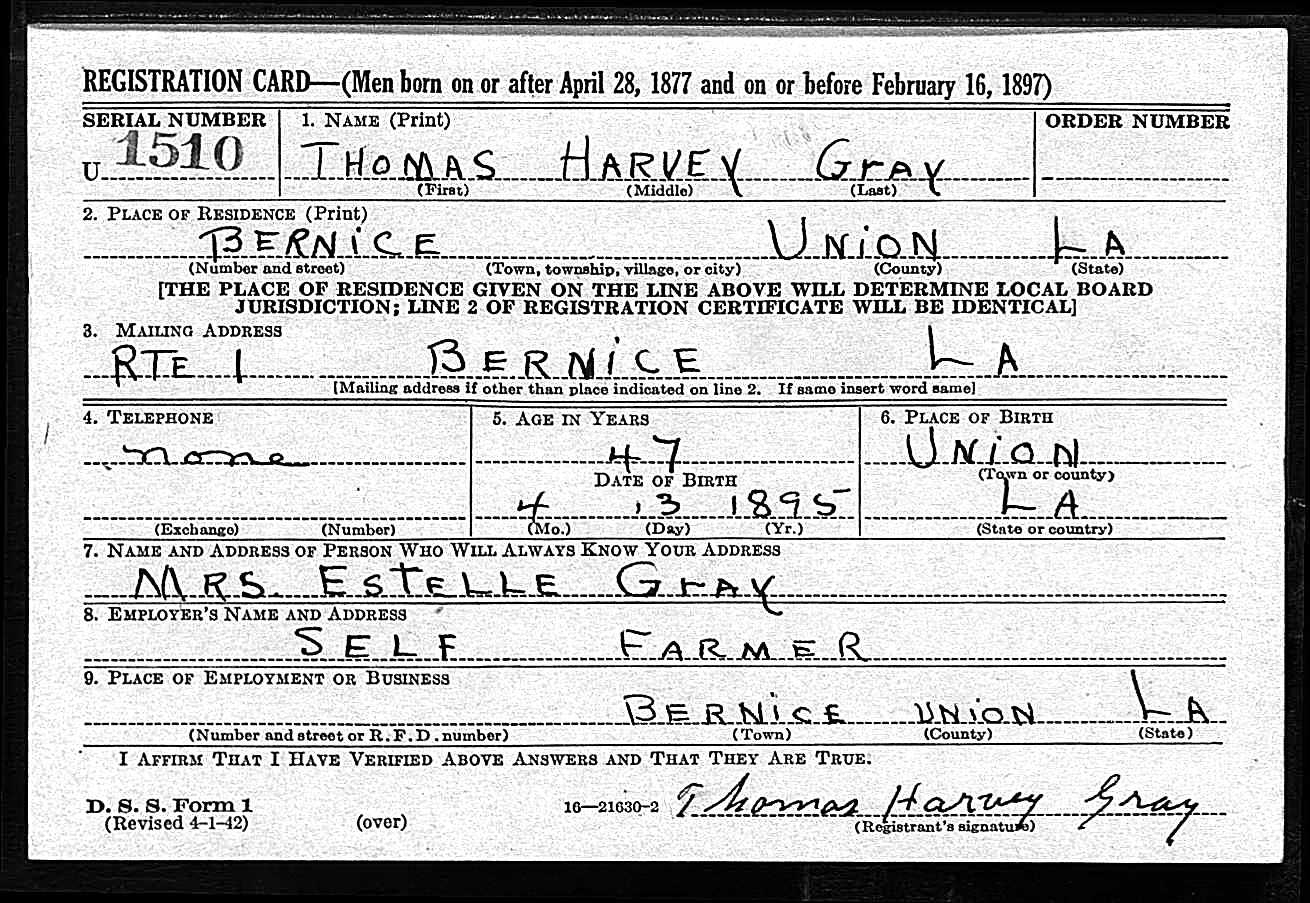 REGISTRATION CARD—(Men born on or after April 28, 1877 and on or before February 16, 1897)
SERIAL NUMBER 1. NAME (Print) ORDER NUMBER
U 1510 THOMAS HARVEY GrAY
(First) (Middle) (Last)
2. PLACE OF RESIDENCE (Print)
BERNiCE UNiON LA
(Number and street) (Town, township, village, or city) (County) (State)
[THE PLACE OF RESIDENCE GIVEN ON THE LINE ABOVE WILL DETERMINE LOCAL BOARD
JURISDICTION; LINE 2 OF REGISTRATION CERTIFICATE WILL BE IDENTICAL]
3. MAILING ADDRESS
RTE 1 BERNiCE LA
[Mailing address if other than place indicated on line 2. If same insert word same]
4. TELEPHONE 5. AGE IN YEARS 6. PLACE OF BIRTH
none 47 UNiON
DATE OF BIRTH (Town or county)
4 13 1895 LA
(Exchange) (Number) (Mo.) (Day) (Yr.) (State or country)
7. NAME AND ADDRESS OF PERSON WHO WILL ALWAYS KNOW YOUR ADDRESS
MRS. ESTELLE GrAY
8. EMPLOYER'S NAME AND ADDRESS
SELF FARMER
9. PLACE OF EMPLOYMENT OR BUSINESS
BERNiCE UNiON LA
(Number and street or R. F. D. number) (Town) (County) (State)
I AFFIRM THAT I HAVE VERIFIED ABOVE ANSWERS AND THAT THEY ARE TRUE.
D. S. S. Form 1 16—21630-2 Thomas Harvey Gray
(Revised 4-1-42) (over) (Registrant's signature)